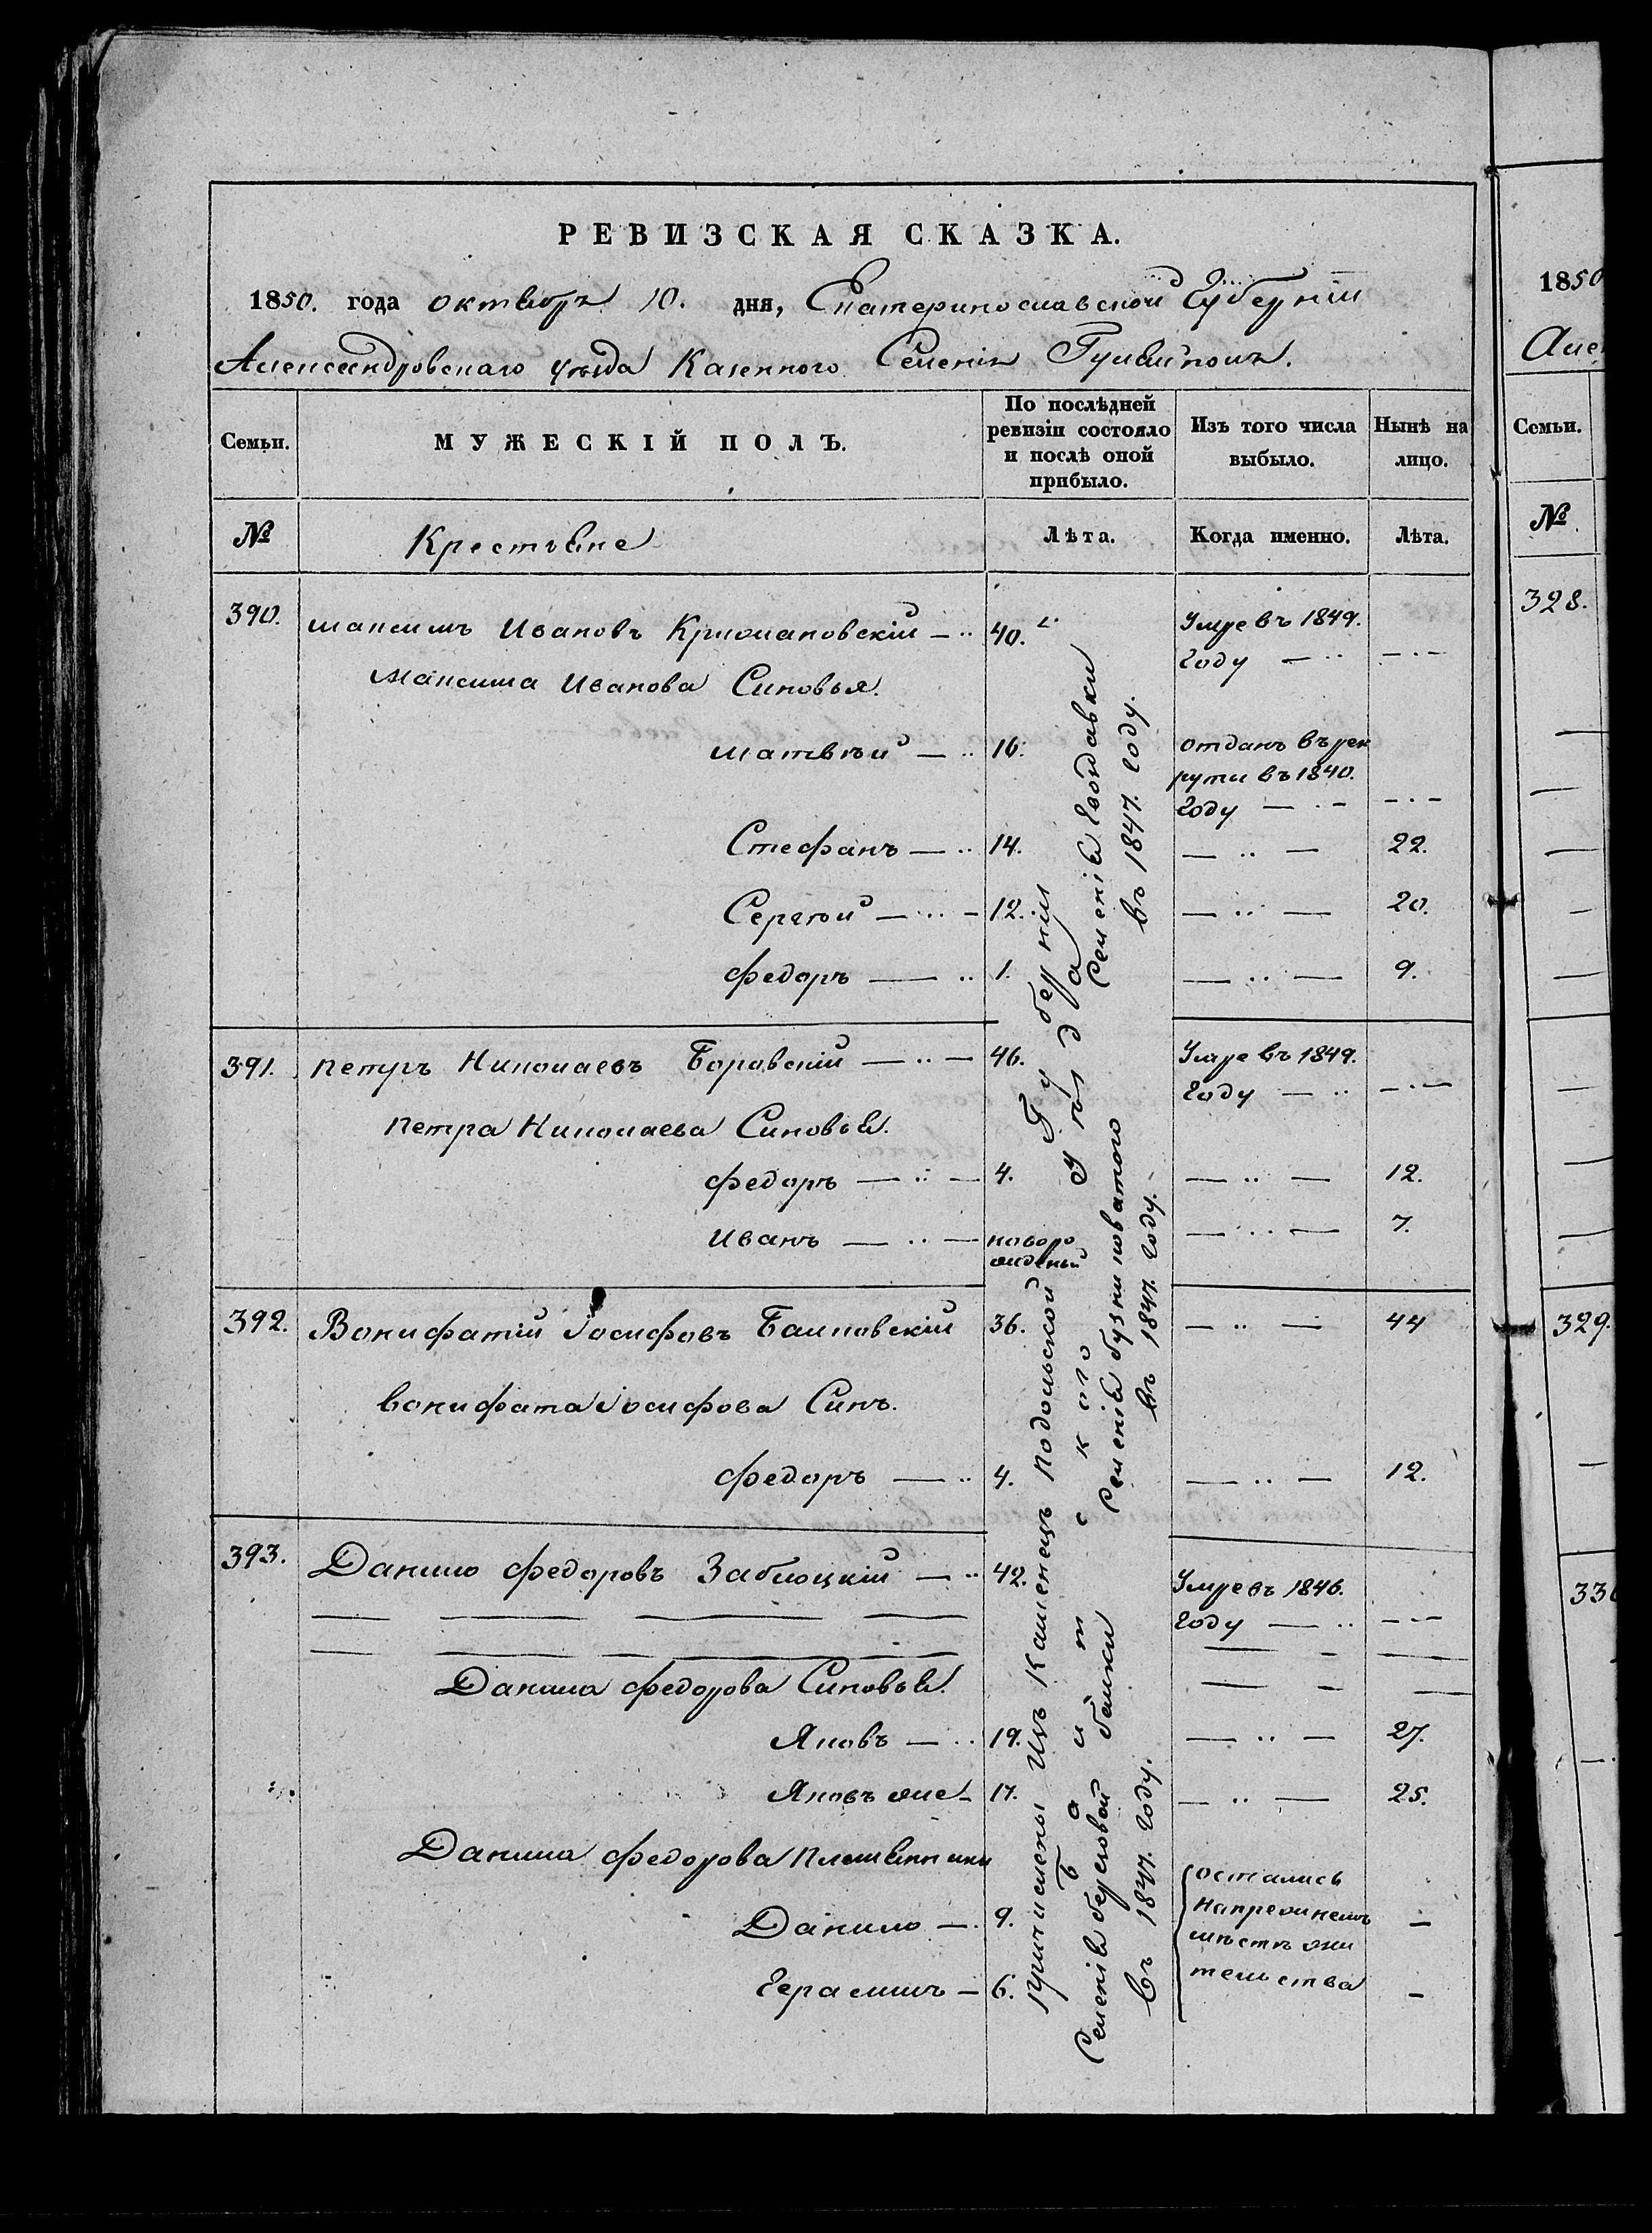 РЕВИЗСКАЯ СКАЗКА.
1850. года октября 10. дня, Екатеринославской Губерніи
Александровскаго уѣзда Казенного Селенія Гуляйполя.
Семьи.
МУЖЕСКІЙ ПОЛЪ.
По послѣдней ревизіи состояло и послѣ оной прибыло.
Изъ того числа выбыло.
Нынѣ на лицо.
№
Крестьяне
Лѣта.
Когда именно.
Лѣта.
390. Максимъ Ивановъ Крижановскій — 40. Умре въ 1849.
Году —
Максима Иванова Синовья.
Матвѣй — 16. отданъ въ рек
рути въ 1840.
Году —
Стефанъ — 14. — 22.
Сергѣй — 12. — 20.
Федоръ — 1. — 9.
391. Петръ Николаевъ Боровскій — 46. Умре въ 1849.
Году —
Петра Николаева Синовья.
Федоръ — 4. — 12.
Иванъ — новоро
жденый — 7.
392. Вонифатій Іосифовъ Балковскій 36. — 44
Вонифата Іосифова Синъ.
Федоръ — 4. — 12.
393. Данило Федоровъ Заблоцкій — 42. Умре въ 1846.
Году —
Данила Федорова Синовья.
Яковъ — 19. — 27.
Яковъ же 17. — 25.
Данила Федорова Племянники
Данило — 9. —
Герасимъ — 6. —
остались
на прежнемъ
мѣстѣ жи
тельства
Причислены изъ Каменецъ Подольской Губерніи
Балтского Уѣзда
Селенія Гвоздавки
въ 1847. году.
Селенія бузниковатого
въ 1847. году.
Селенія берсковой балки
въ 1847. году.
1850
Але
Семьи.
№
328.
329.
330